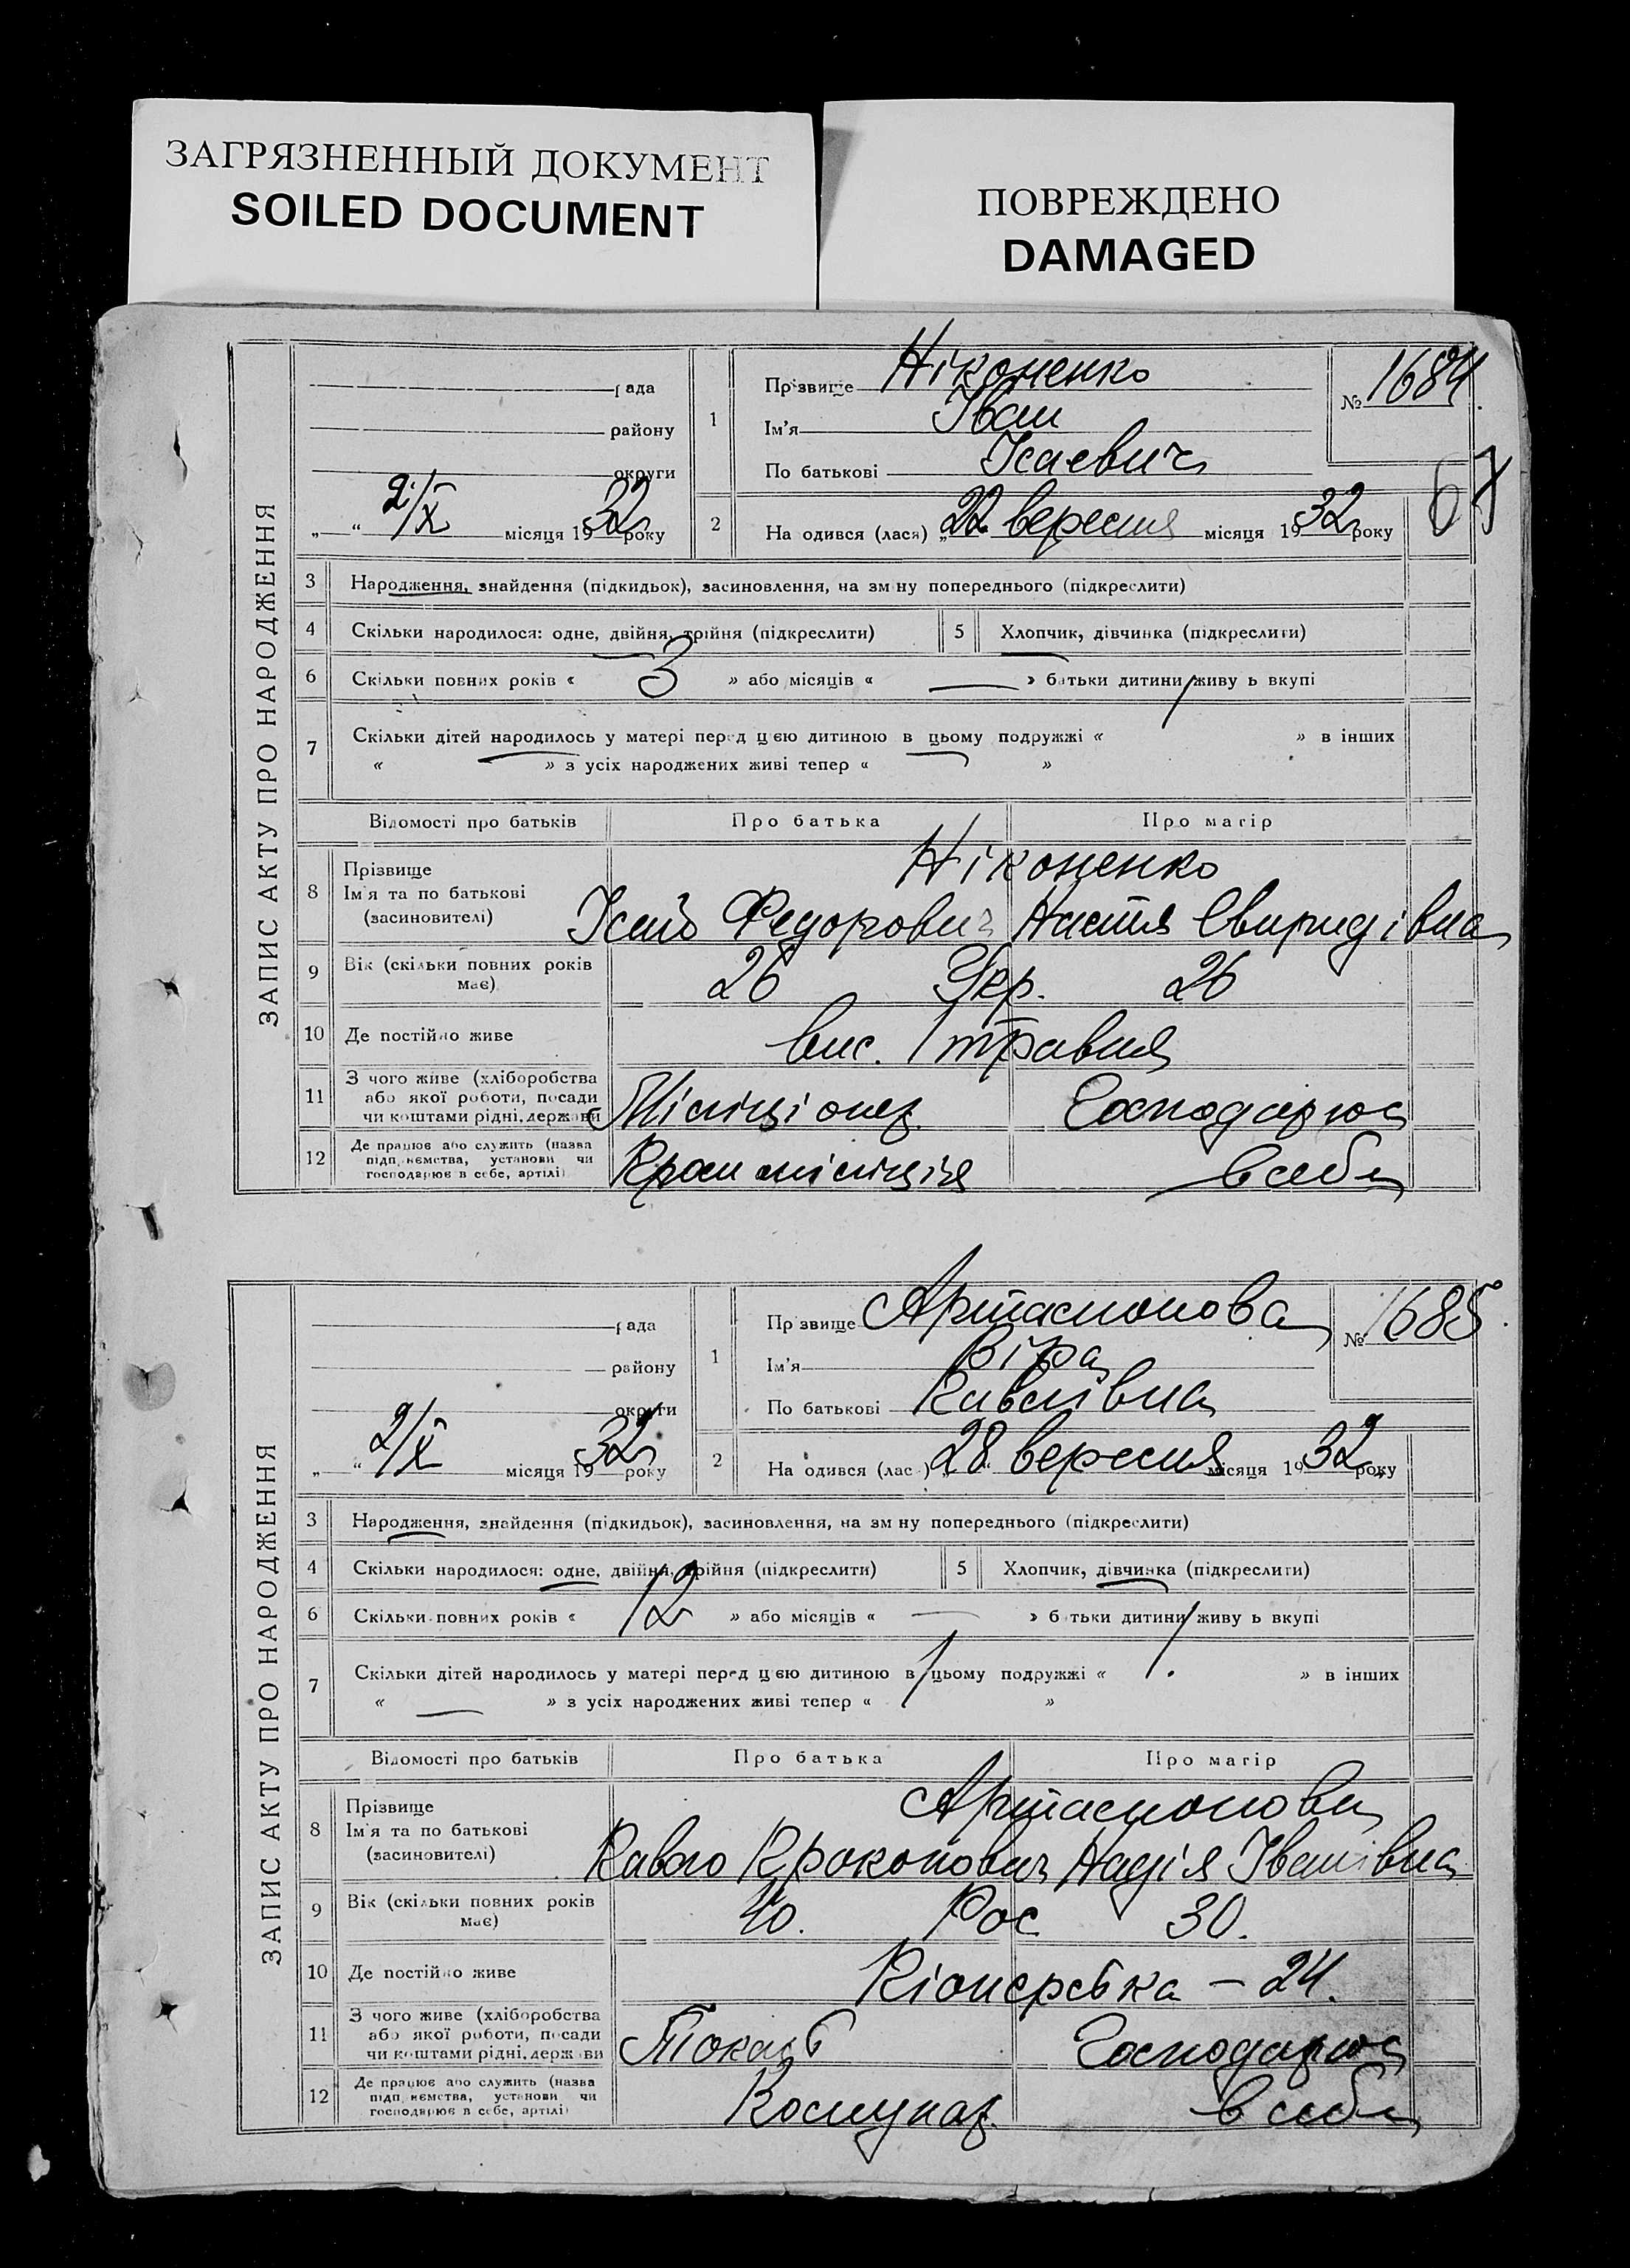 ЗАГРЯЗНЕННЫЙ ДОКУМЕНТ
SOILED DOCUMENT
ПОВРЕЖДЕНО
DAMAGED
ЗАПИС АКТУ ПРО НАРОДЖЕННЯ
рада
району
округи
„ “ 2/X місяця 1932 року
1 Прізвище Ніконенко
Ім'я Іван
По батькові Ісаевич
№ 1684.
67
2 На одився (лася) „22 вересня місяця 1932 року
3 Народження, знайдення (підкидьок), засиновлення, на зм ну попереднього (підкреслити)
4 Скільки народилося: одне, двійня, трійня (підкреслити) 5 Хлопчик, дівчинка (підкреслити)
6 Скільки повних років « 3 » або місяців « — » батьки дитини живу ь вкупі
7 Скільки дітей народилось у матері перед цією дитиною в цьому подружжі « » в інших
« » з усіх народжених живі тепер « »
Відомості про батьків Про батька Про матір
8 Прізвище
Ім'я та по батькові
(засиновителі)
Ніконенко
Ісай Федорович Настя Свиридівна
9 Вік (скільки повних років має) 26 Укр. 26
10 Де постійно живе вис. 1 травня
11 З чого живе (хліборобства
або якої роботи, посади
чи коштами рідні, держави
Міліціонер Господарює
12 Де працює або служить (назва
підп иємства, установи чи
господарює в себе, артілі)
міліція в себе
ЗАПИС АКТУ ПРО НАРОДЖЕННЯ
рада
району
округи
„ “ 2/X місяця 1932 року
1 Пр звище Артамонова
Ім'я Віра
По батькові Павлівна
№ 1685.
2 На одився (лас ) „28 вересня місяця 1932 року
3 Народження, знайдення (підкидьок), засиновлення, на зм ну попереднього (підкреслити)
4 Скільки народилося: одне, двійня, трійня (підкреслити) 5 Хлопчик, дівчинка (підкреслити)
6 Скільки повних років « 12 » або місяців « — » б тьки дитини живу ь вкупі
7 Скільки дітей народилось у матері перед цією дитиною в цьому подружжі « » в інших
« — » з усіх народжених живі тепер « »
Відомості про батьків Про батька Про матір
8 Прізвище
Ім'я та по батькові
(засиновителі)
Артамонови
Павло Прокопович Надія Іванівна
9 Вік (скільки повних років має) 40. Рос 30.
10 Де постійно живе Піонерська – 24.
11 З чого живе (хліборобства
або якої роботи, посади
чи коштами рідні, держ ви
Токарь Господарює
12 Де працює або служить (назва
підп иємства, установи чи
господарює в себе, артілі)
Комунар. в себе